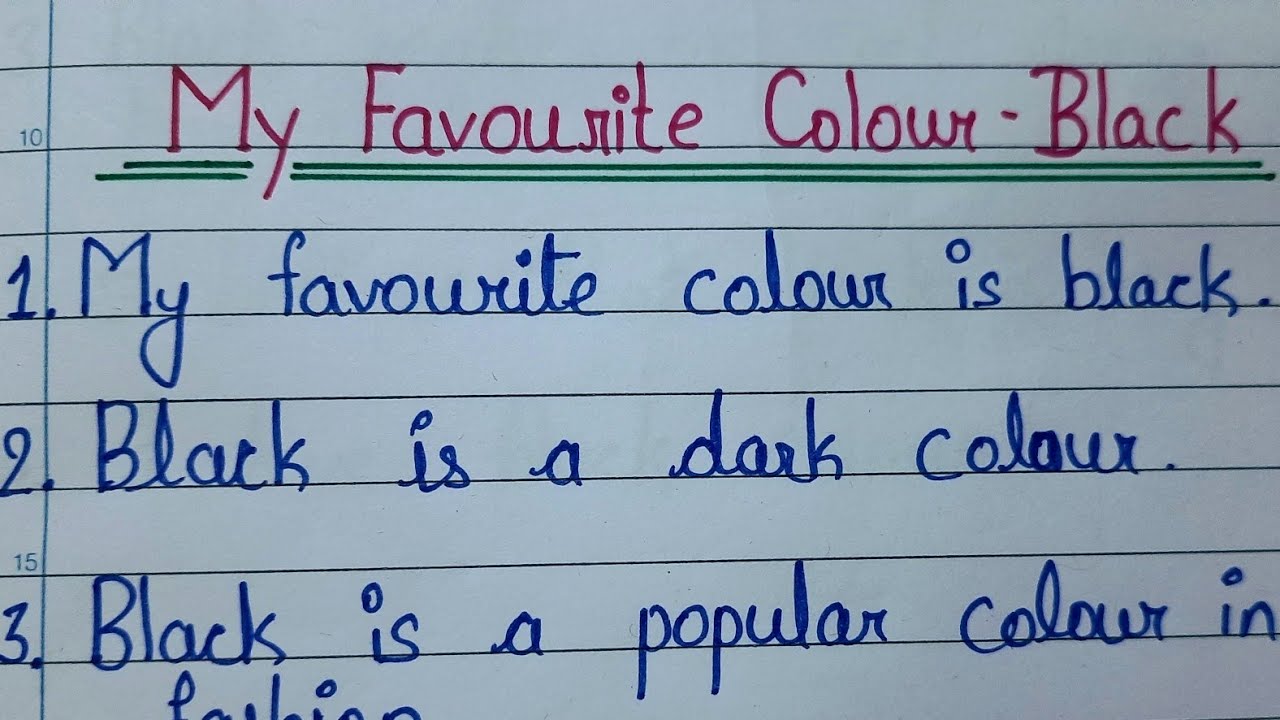 10
My Favourite Colour - Black
1. My favourite colour is black.
2. Black is a dark colour.
15
3. Black is a popular colour in
fashion